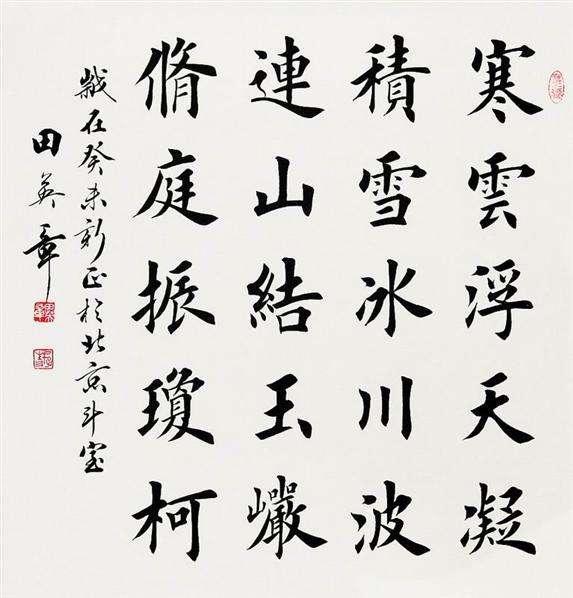 寒雲浮天凝
積雪冰川波
連山結玉巗
脩庭振瓊柯
歲在癸未新正於北京斗室
田英章